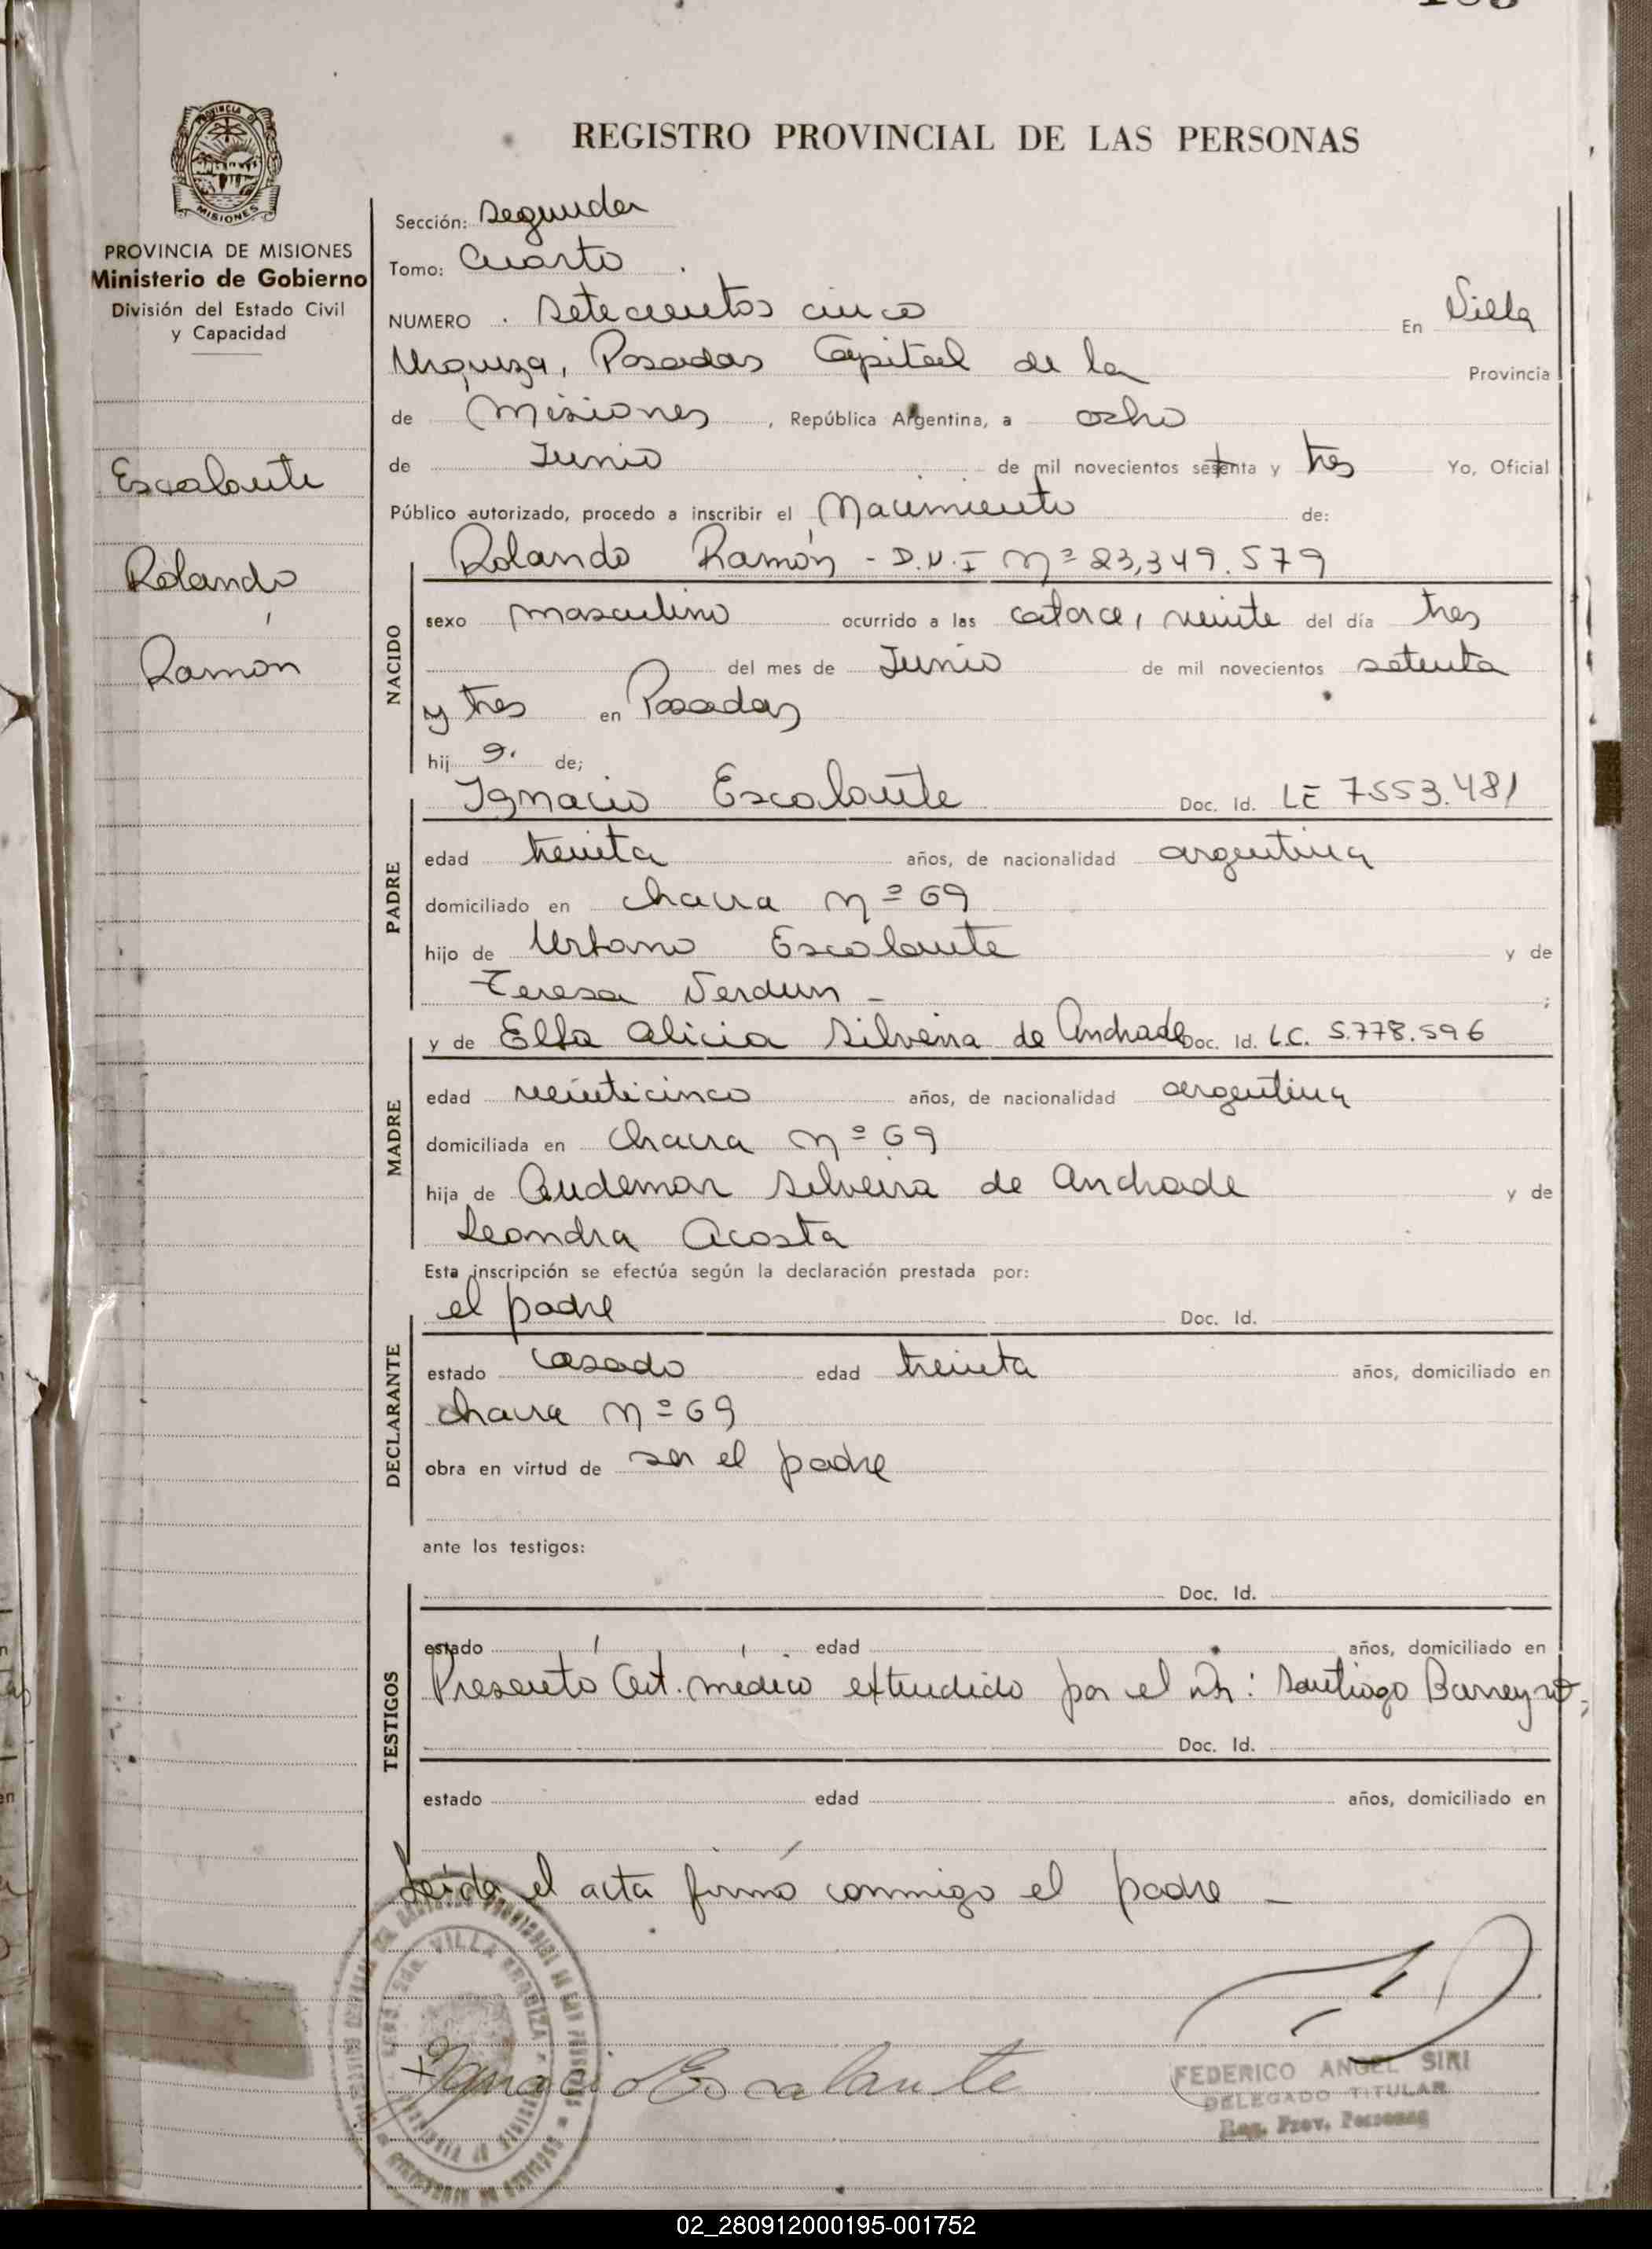 PROVINCIA DE
MISIONES
PROVINCIA DE MISIONES
Ministerio de Gobierno
División del Estado Civil
y Capacidad
Escalante
Rolando
Ramón
REGISTRO PROVINCIAL DE LAS PERSONAS
Sección: Segunda
Tomo: Cuarto
NUMERO Setecientos cinco En Villa
Urquiza, Posadas Capital de la Provincia
de Misiones, República Argentina, a ocho
de Junio de mil novecientos setenta y tres Yo, Oficial
Público autorizado, procedo a inscribir el Nacimiento de:
Rolando Ramón - D.N.I Nº 23,349.579
NACIDO
sexo masculino ocurrido a las catorce, veinte del día tres
del mes de Junio de mil novecientos setenta
y tres en Posadas
hij o. de;
PADRE
Ignacio Escalante Doc. Id. LE 7553.481
edad treinta años, de nacionalidad argentina
domiciliado en chacra Nº 69
hijo de Urbano Escalante y de
Teresa Verdun - ;
MADRE
y de Elba Alicia Silveira de Andrade Doc. Id. L.C. 5.778.596
edad veinticinco años, de nacionalidad argentina
domiciliada en chacra Nº 69
hija de Audemar Silveira de Andrade y de
Leandra Acosta
Esta inscripción se efectúa según la declaración prestada por:
DECLARANTE
el padre Doc. Id.
estado casado edad treinta años, domiciliado en
chacra Nº 69
obra en virtud de ser el padre
ante los testigos:
TESTIGOS
Doc. Id.
estado edad años, domiciliado en
Presentó Cert. médico extendido por el Dr: Santiago Barreyro.-
Doc. Id.
estado edad años, domiciliado en
Leída el acta firmó conmigo el padre -
VILLA URQUIZA
Ignacio Escalante
FEDERICO ANGEL SIRI
DELEGADO TITULAR
Reg. Prov. Personas
02_280912000195-001752